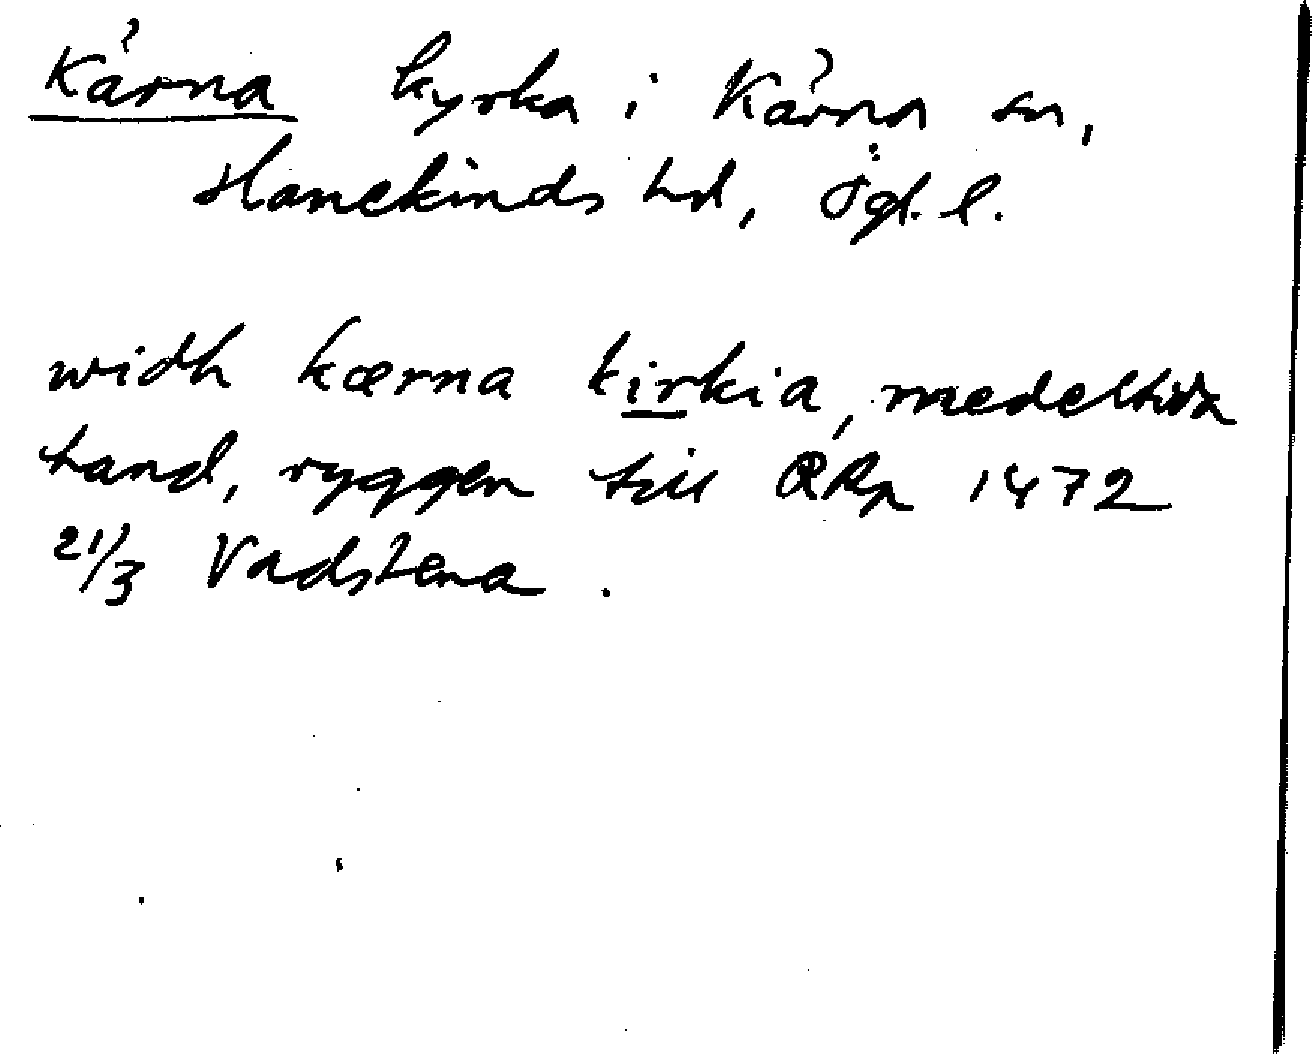 Kärna kyrka i Kärna sn,
Hanekinds hd, Ögl. l.
widh kærna kirkia, medeltida
hand, ryggen till RAp 1472
21/3 Vadstena.